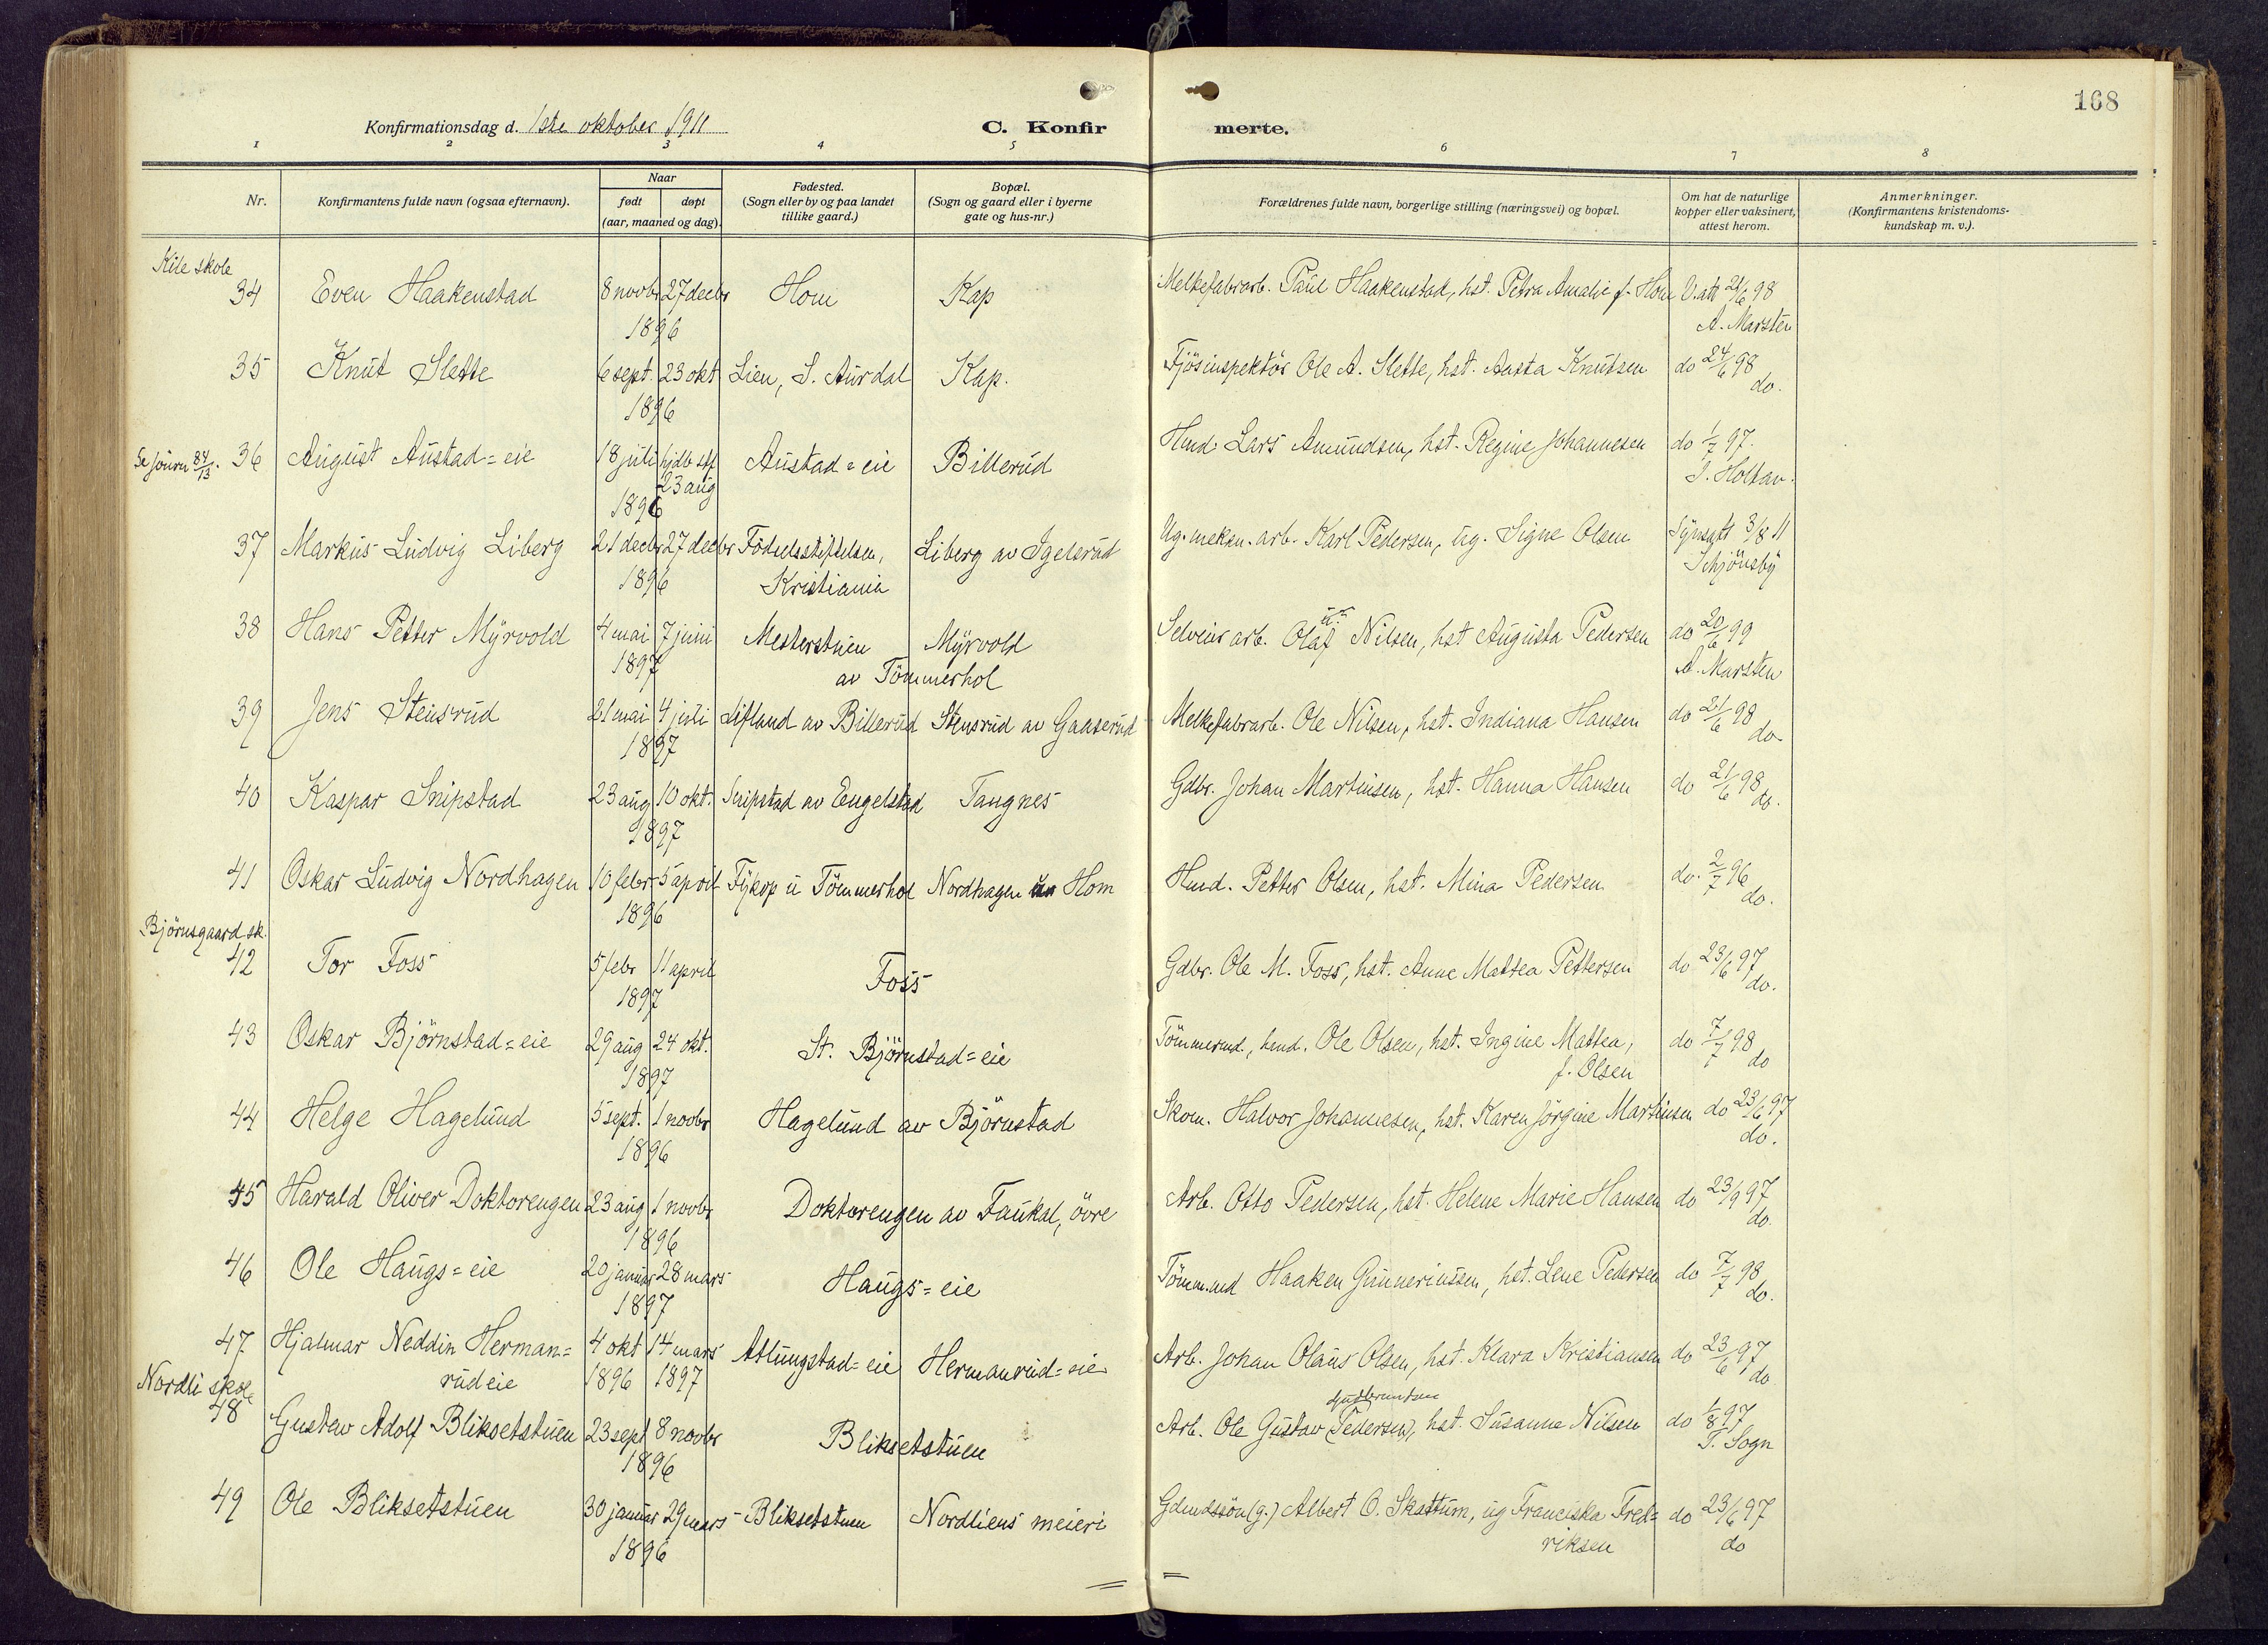 168
Konfirmationsdag d. 1ste oktober 1911
C. Konfirmerte.
1 2 3 4 5 6 7 8
Nr.
Konfirmantens fulde navn (ogsaa efternavn).
Naar
født døpt
(aar, maaned og dag).
Fødested.
(Sogn eller by og paa landet
tillike gaard.)
Bopæl.
(Sogn og gaard eller i byerne
gate og hus-nr.)
Forældrenes fulde navn, borgerlige stilling (næringsvei) og bopæl.
Om hat de naturlige
kopper eller vaksinert,
attest herom.
Anmerkninger.
(Konfirmantens kristendoms-
kundskap m. v.).
Kile skole
34 Even Haakenstad 8 novbr 27 decbr Hom Kap Melkefabrarb. Paul Haakenstad, hst. Petra Amalie f. Hom V. att 21/6 98
1896 A. Marsten
35 Knut Slette 6 sept. 23 okt Lien, S. Aurdal Kap. Fjösinspektör Ole A. Slette, hst. Aasta Knutsen do 24/6 98
1896 do.
Se journ 84/13. 36 August Austad=eie 18 juli hjdb stf Austad=eie Billerud Hmd. Lars Amundsen, hst. Regine Johannesen do 1/7 97.
23 aug
1896 I. Holtan.
37 Markus Ludvig Liberg 21 decbr 27 decbr Födselsstiftelsen, Liberg av Igelsrud Ug. mekan. arb. Karl Pedersen, ug. Signe Olsen Synsatt 3/8 11
1896 Kristiania Schjönsby
38 Hans Petter Myrvold 4 mai 7 juni Mesterstuen Myrvold Selveier arb. Olaf Nilsen, hst Augusta Pedersen do 20/6 99
1897 av Tömmerhol A. Marsten
39 Jens Stensrud 21 mai 4 juli Lifland av Billerud Stensrud av Gaaserud Melkefabrarb. Ole Nilsen, hst. Indiana Hansen do 21/6 98
1897 do
40 Kaspar Snipstad 23 aug 10 okt. Snipstad av Engelstad Tangnes Gdbr. Johan Martinsen, hst. Hanna Hansen do 21/6 98
1897 do.
41 Oskar Ludvig Nordhagen 10 febr 5 april Fykop u Tömmerhol Nordhagen un Hom Hmd. Petter Olsen, hst. Mina Pedersen do. 2/7 96
1896 do.
Björnsgaard sk.
42 Tor Foss 5 febr 11 april Foss Gdbr. Ole M. Foss, hst. Anne Mattea Pettersen do 23/6 97
1897 do.
43 Oskar Björnstad=eie 29 aug 24 okt. St. Björnstad=eie Tömmermd., hmd. Ole Olsen, hst. Ingine Mattea, do 7/7 98
1897 f. Olsen do
44 Helge Hagelund 5 sept. 1 novbr Hagelund av Björnstad Skom. Halvor Johannesen, hst. Karen Jörgine Martinsen do 23/6 97
1896 do.
45 Harald Oliver Doktorengen 23 aug 1 novbr Doktorengen av Faukal, övre Arb. Otto Pedersen, hst. Helene Marie Hansen do 23/9 97
1896 do.
46 Ole Haugs=eie 20 januar 28 mars Haugs=eie Tömm.md Haaken Gunneriussen, hst. Lene Pedersen do 7/7 98
1897 do.
47 Hjalmar Neddin Herman= 4 okt 14 mars Atlungstad=eie Hermanrud=eie Arb. Johan Olaus Olsen, hst. Klara Kristiansen do 23/6 97
rud eie 1896 1897 do
Nordli skole
Gudbrandsen
48 Gustav Adolf Bliksetstuen 23 sept 8 novbr Bliksetstuen Arb. Ole Gustav (Pedersen), hst. Susanne Nilsen do 1/8 97
1896 T. Sogn
49 Ole Bliksetstuen 30 januar 29 mars Bliksetstuen Nordliens meieri Gdmdssön (g.) Albert O. Skattum, ug Franciska Fred= do 23/6 97
1896 riksen do